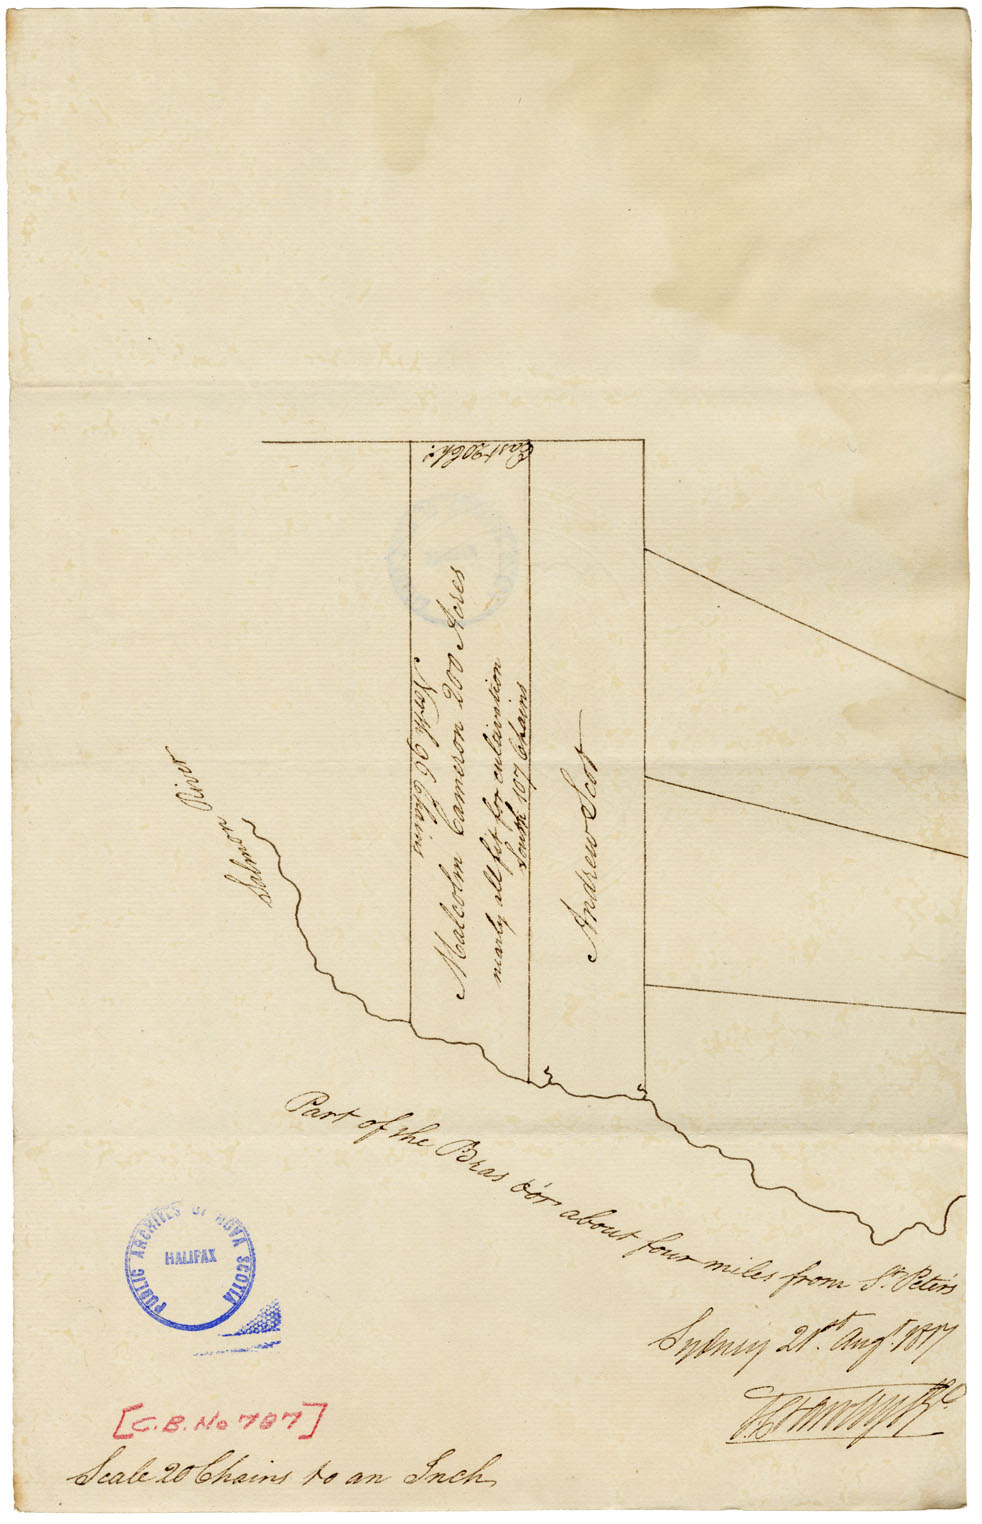 East 20 Chs.
North 96 Chains
Malcolm Cameron 200 Acres
nearly all fit for cultivation
South 107 Chains
Andrew Scot
Salmon River
Part of the Bras d'or about four miles from St. Peters
Sydney 21st. Augt. 1817
PUBLIC ARCHIVES OF NOVA SCOTIA
HALIFAX
[C.B. No 787]
Scale 20 Chains to an Inch